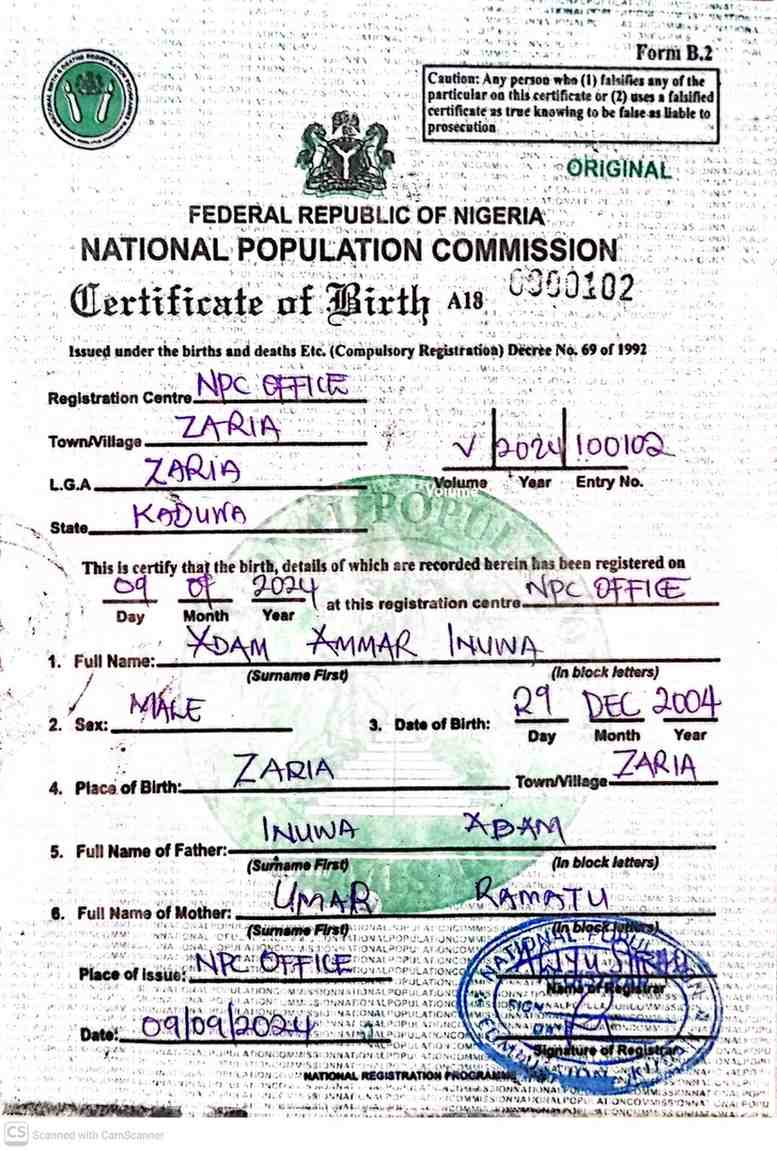 Form B.2
Caution: Any person who (1) falsifies any of the
particular on this certificate or (2) uses a falsified
certificate as true knowing to be false as liable to
prosecution
ORIGINAL
FEDERAL REPUBLIC OF NIGERIA
NATIONAL POPULATION COMMISSION
Certificate of Birth A18 0000102
Issued under the births and deaths Etc. (Compulsory Registration) Decree No. 69 of 1992
Registration Centre NPC OFFICE
Town/Village ZARIA
L.G.A ZARIA
State KADUNA
V 2024 100102
Volume Year Entry No.
Volume
This is certify that the birth, details of which are recorded herein has been registered on
09 09 2024 at this registration centre NPC OFFICE
Day Month Year
1. Full Name: ADAM AMMAR INUWA
(Surname First) (In block letters)
2. Sex: MALE 3. Date of Birth: 29 DEC 2004
Day Month Year
4. Place of Birth: ZARIA Town/Village ZARIA
5. Full Name of Father: INUWA ADAM
(Surname First) (In block letters)
6. Full Name of Mother: UMAR RAMATU
(Surname First) (In block letters)
Place of Issue: NPC OFFICE
Name of Registrar
Date: 09/09/2024
SIGN
Signature of Registrar
NATIONAL REGISTRATION PROGRAMME
CS Scanned with CamScanner